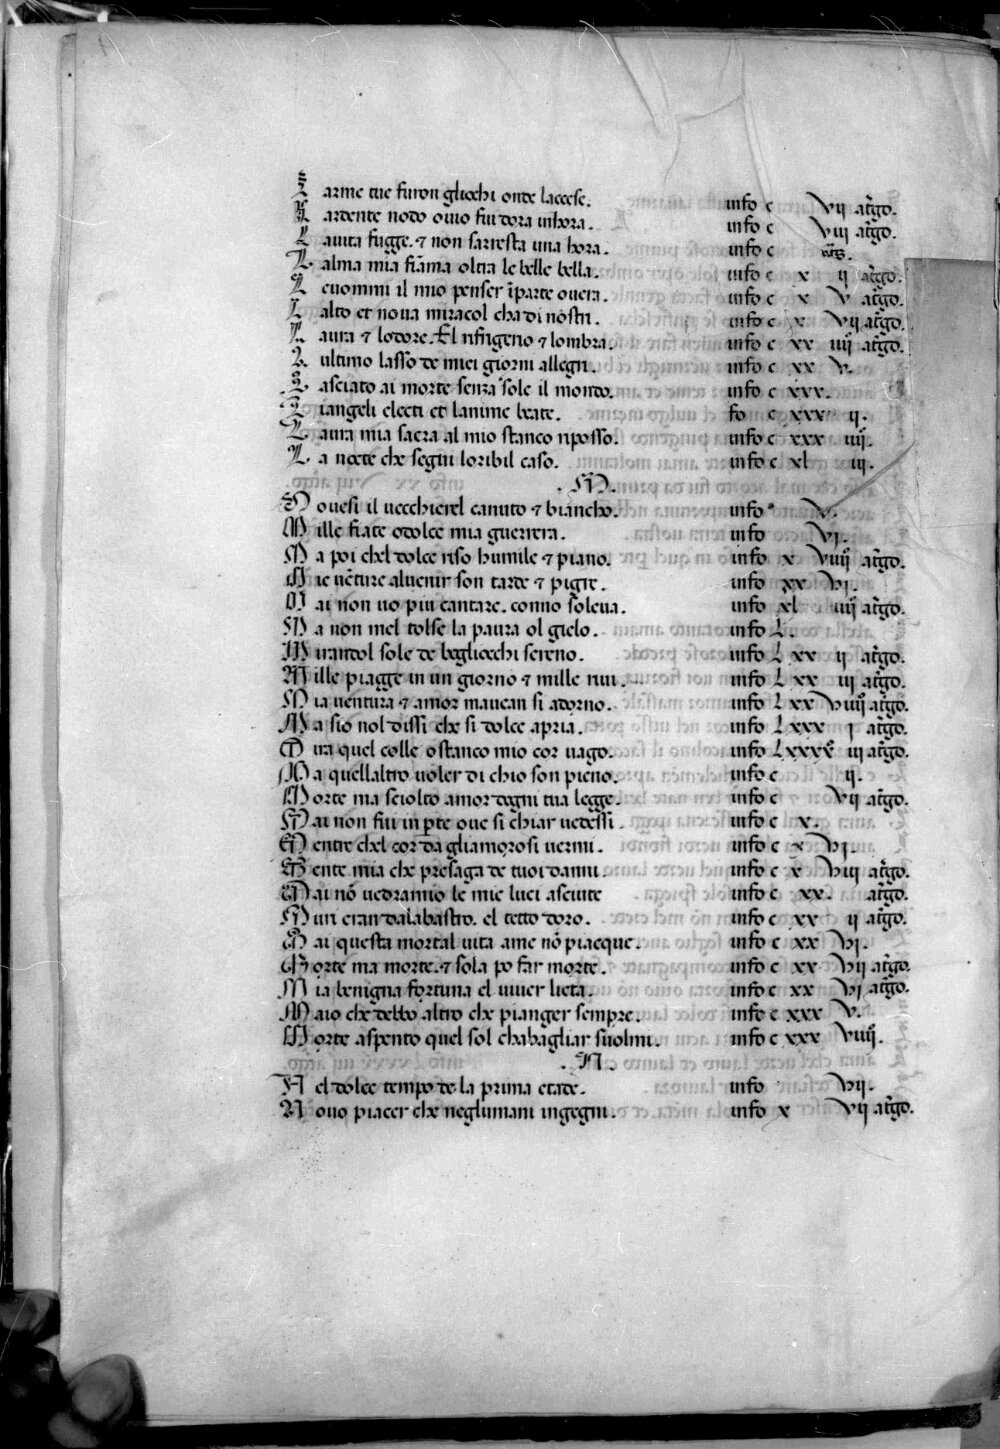 L arme tue furon gliocchi onde laccese. info c vii atgo.
L ardente nodo ouio fui dora inhora. info c viii atgo.
L auita fugge. & non sarresta una hora. info c
L alma mia fiãma oltra le belle bella. info c x ii atgo.
L euommi il mio penser ĩparte ouera. info c x v atgo.
L alto et noua miracol cha di nostri. info c x vii atgo.
L aura & lodore. El rifrigerio & lombra. info c xx iiii atgo.
L ultimo lasso de miei giorni allegri. info c xx v.
L asciato ai morte senza sole il mondo. info c xxx.
L iangeli electi et lanime beate. fo c xxx ii.
L aura mia sacra al mio stanco riposso. info c xxx iiii.
L a nocte che segui loribil caso. info c xl iii.
. M .
M ouesi il uecchierel canuto & biancho. info v.
M ille fiate odolce mia guerrera. info vi.
M a poi chel dolce riso humile & piano. info x viiii atgo.
M ie uẽture aluenir son tarde & pigre. info xx vi.
M ai non uo piu cantare. como soleua. info xl iiii atgo.
M a non mel tolse la paura ol gielo. info L.
M irandol sole de begliocchi sereno. info L xx ii atgo.
M ille piagge in un giorno & mille riui. info L xx iii atgo.
M ia uentura & amor mauean si adorno. info L xx viiii atgo.
M a sio nol dissi che si dolce apria. info L xxx i atgo.
M ira quel colle ostanco mio cor uago. info L xxxx iii atgo.
M a quellaltro uoler di chio son pieno. info c ii.
M orte ma sciolto amor dogni tua legge. info c vii atgo.
M ai non fui in parte oue si chiar uedessi. info c x.
M entre chel cor da gliamorosi uermi. info c x vi.
M ente mia che presaga de tuoi danni info c x viii atgo.
M ai nõ uedranno le mie luci asciute info c xx. atgo.
M uri eran dalabastro. el tetto doro. info c xx ii atgo.
M ai questa mortal uita ame nõ piacque. info c xx vi.
M orte ma morte. & sola po far morte. info c xx vii atgo.
M ia benigna fortuna el uiuer lieta. info c xx vi atgo.
M aio che debbo altro che pianger sempre. info c xxx v.
M orte a spento quel sol chabagliar suolmi. info c xxx viiii.
. N .
N el dolce tempo de la prima etade. info vii.
N ouo piacer che neglumani ingegni. info x vii atgo.